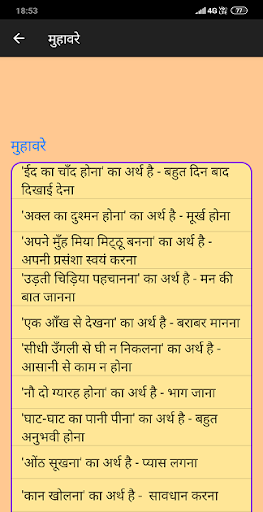 18:53
4G
77
मुहावरे
मुहावरे
'ईद का चाँद होना' का अर्थ है - बहुत दिन बाद
दिखाई देना
'अक्ल का दुश्मन होना' का अर्थ है - मूर्ख होना
'अपने मुँह मिया मिट्ठू बनना' का अर्थ है -
अपनी प्रसंशा स्वयं करना
'उड़ती चिड़िया पहचानना' का अर्थ है - मन की
बात जानना
'एक आँख से देखना' का अर्थ है - बराबर मानना
'सीधी उँगली से घी न निकलना' का अर्थ है -
आसानी से काम न होना
'नौ दो ग्यारह होना' का अर्थ है - भाग जाना
'घाट-घाट का पानी पीना' का अर्थ है - बहुत
अनुभवी होना
'ओंठ सूखना' का अर्थ है - प्यास लगना
'कान खोलना' का अर्थ है - सावधान करना